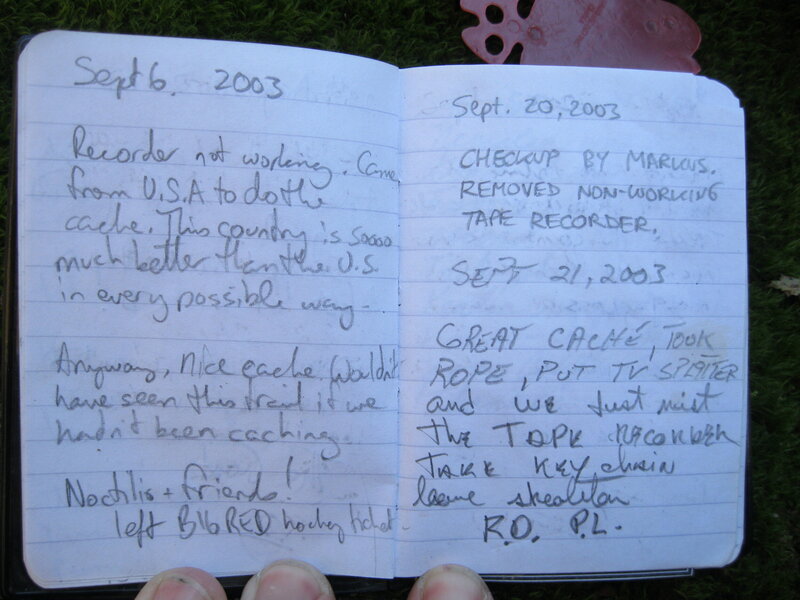 Sept 6. 2003
Recorder not working. Came
from U.S.A to do the
cache. This country is soooo
much better than the U.S.
in every possible way-
Anyway, nice cache. Wouldn't
have seen this trail if we
hadn't been caching.
Noctilis + friends!
left BIG RED hockey ticket-
Sept. 20, 2003
CHECKUP BY MARKUS.
REMOVED NON-WORKING
TAPE RECORDER.
SEPT 21, 2003
GREAT CACHÉ, TOOK
ROPE, PUT TV SPLITTER
and we Just mist
the TAPE RECORDER
TAKE KEY chain
leave skealiton
R.D. P.L.